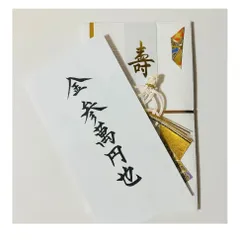 寿
金参萬円也